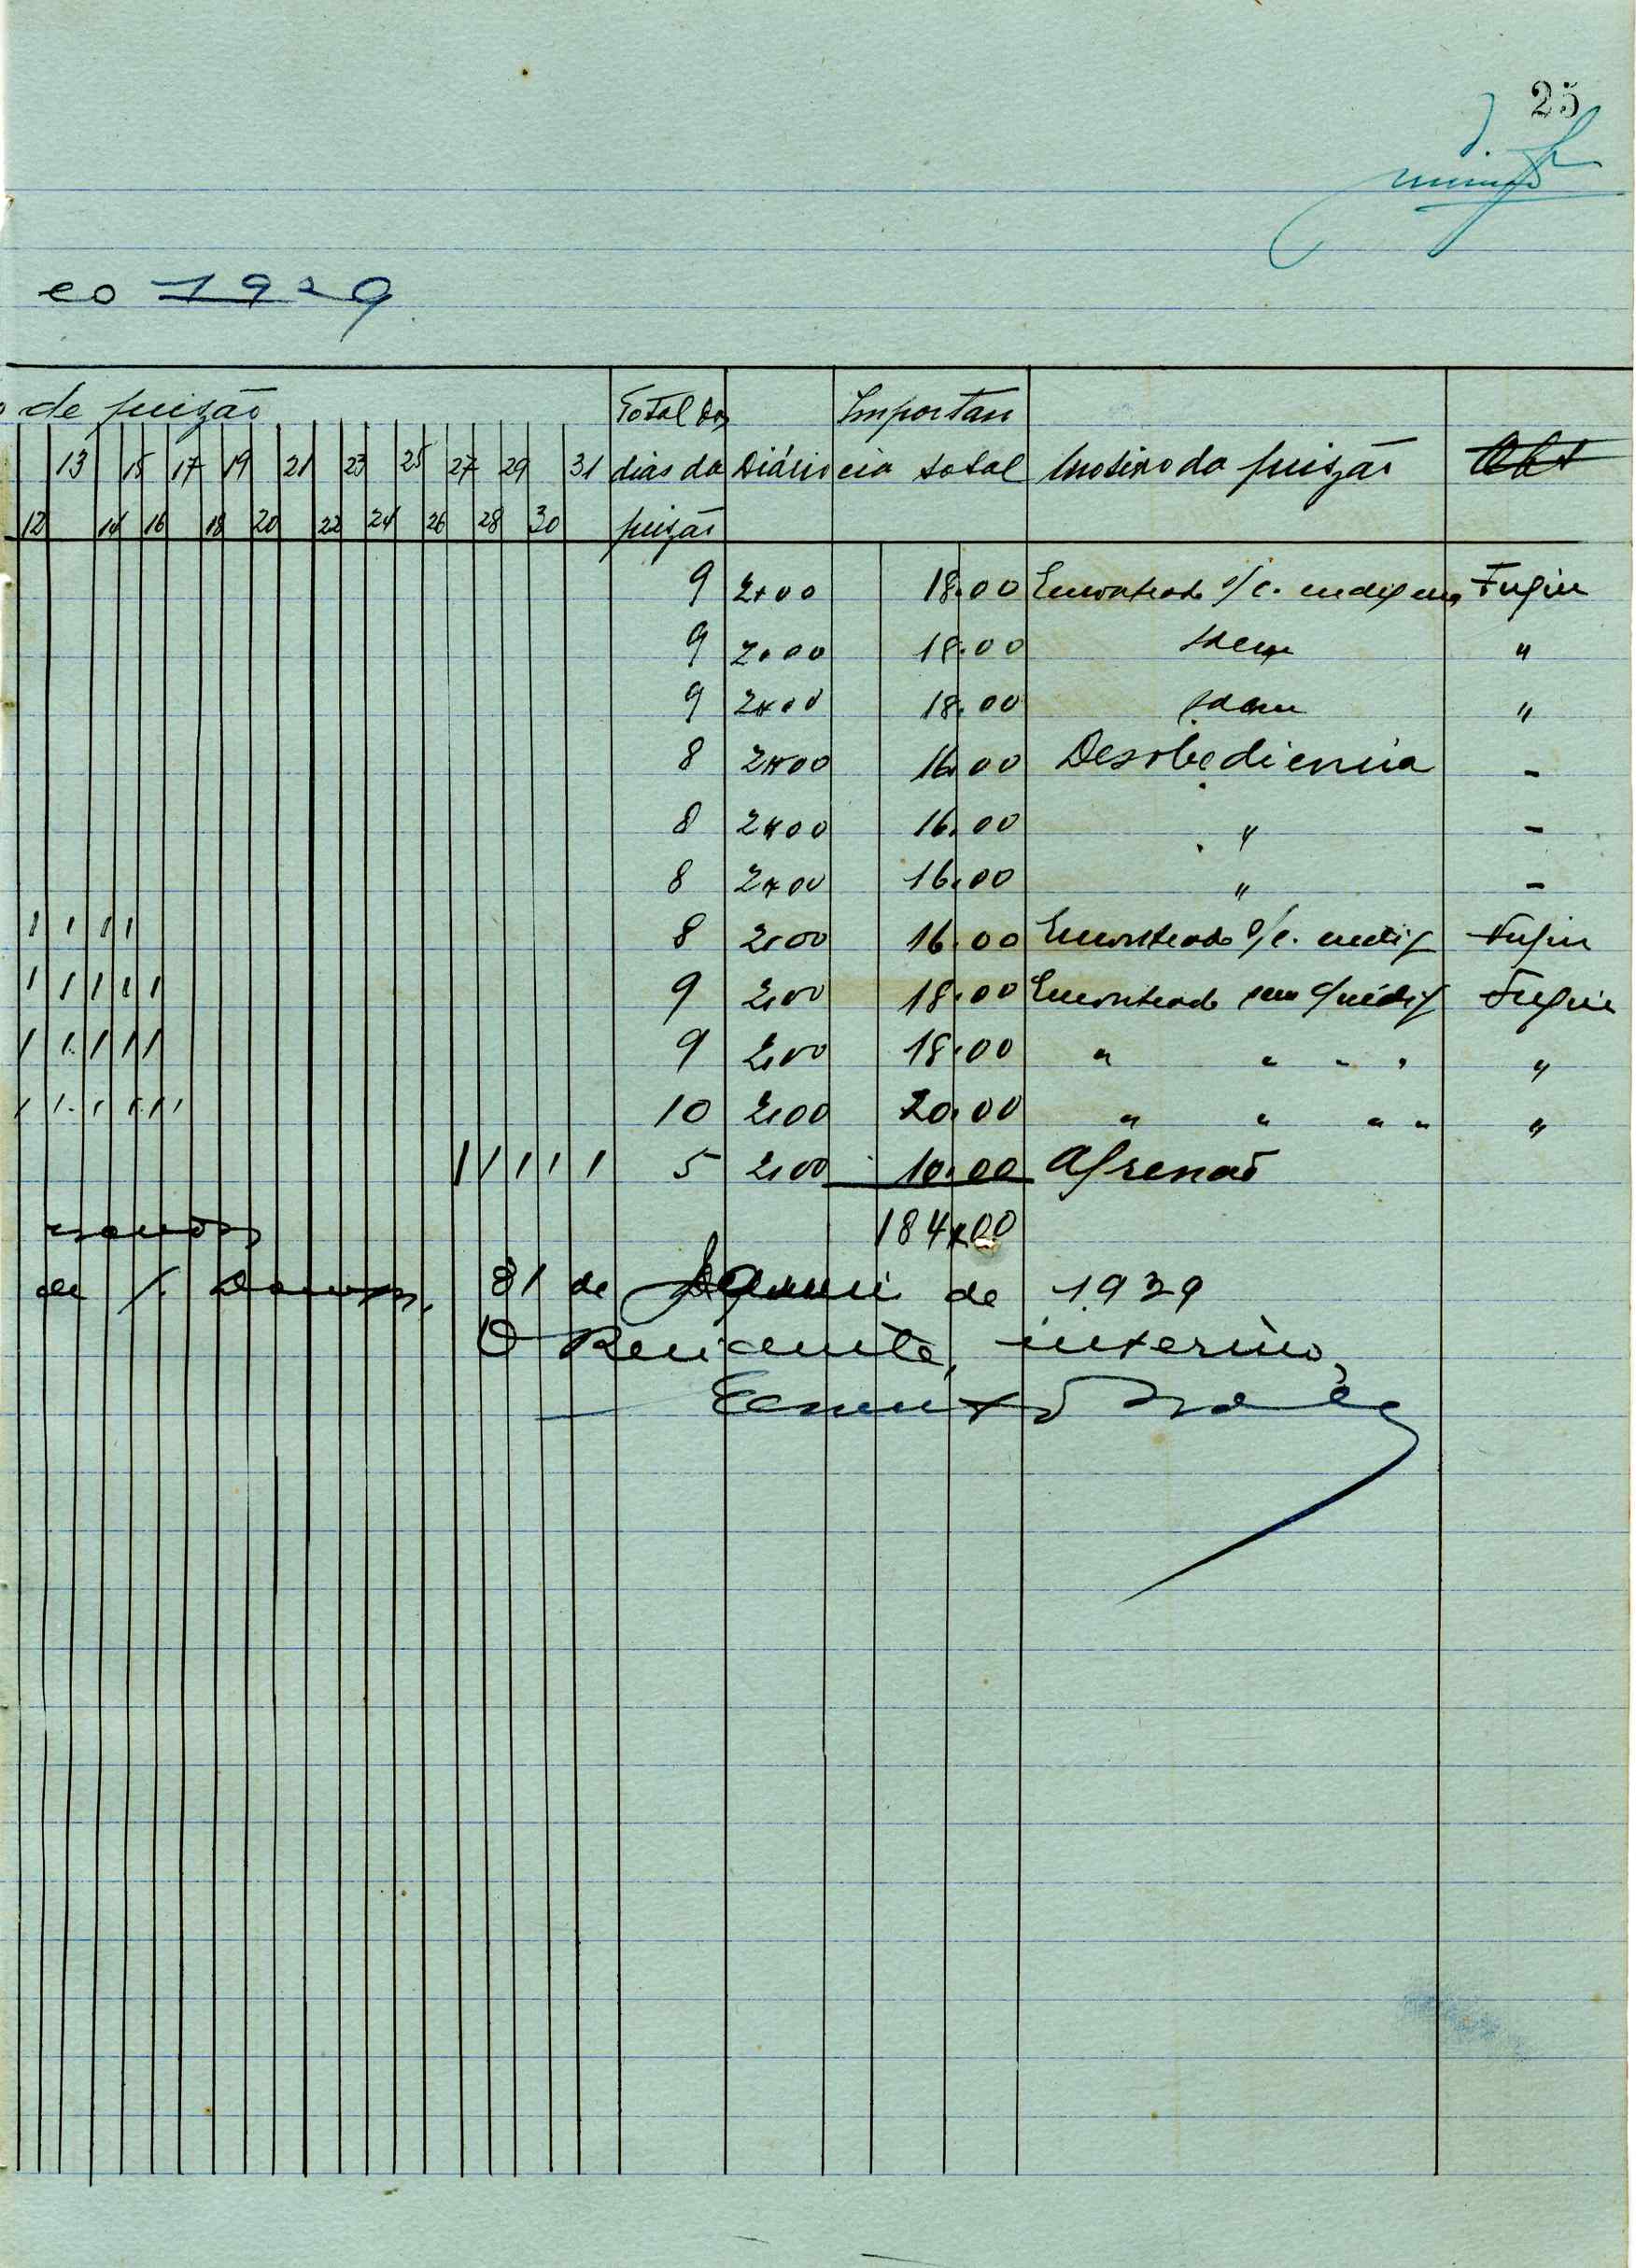 25
eo 1929
de prizão
Total dos dias da prizão
Diário
Importancia total
Motivo da prizão
Obs
13 15 17 19 21 23 25 27 29 31
12 14 16 18 20 22 24 26 28 30
9 2.00 18.00 Encontrado s/ c. indigena Fugiu
9 2.00 18.00 Idem "
9 2x00 18.00 Idem "
8 2x00 16.00 Desobediencia -
8 2x00 16.00 " -
8 2x00 16.00 " -
1 1 1 1 8 2.00 16.00 Encontrado s/c. indig Fugiu
1 1 1 1 1 9 2.00 18.00 Encontrado sem c/ indig Fugiu
1 1 1 1 1 9 2.00 18.00 " " " " "
1 1 1 1 1 1 10 2.00 20.00 " " " " "
1 1 1 1 1 5 2.00 10.00
184x00
31 de de 1929
O interino,